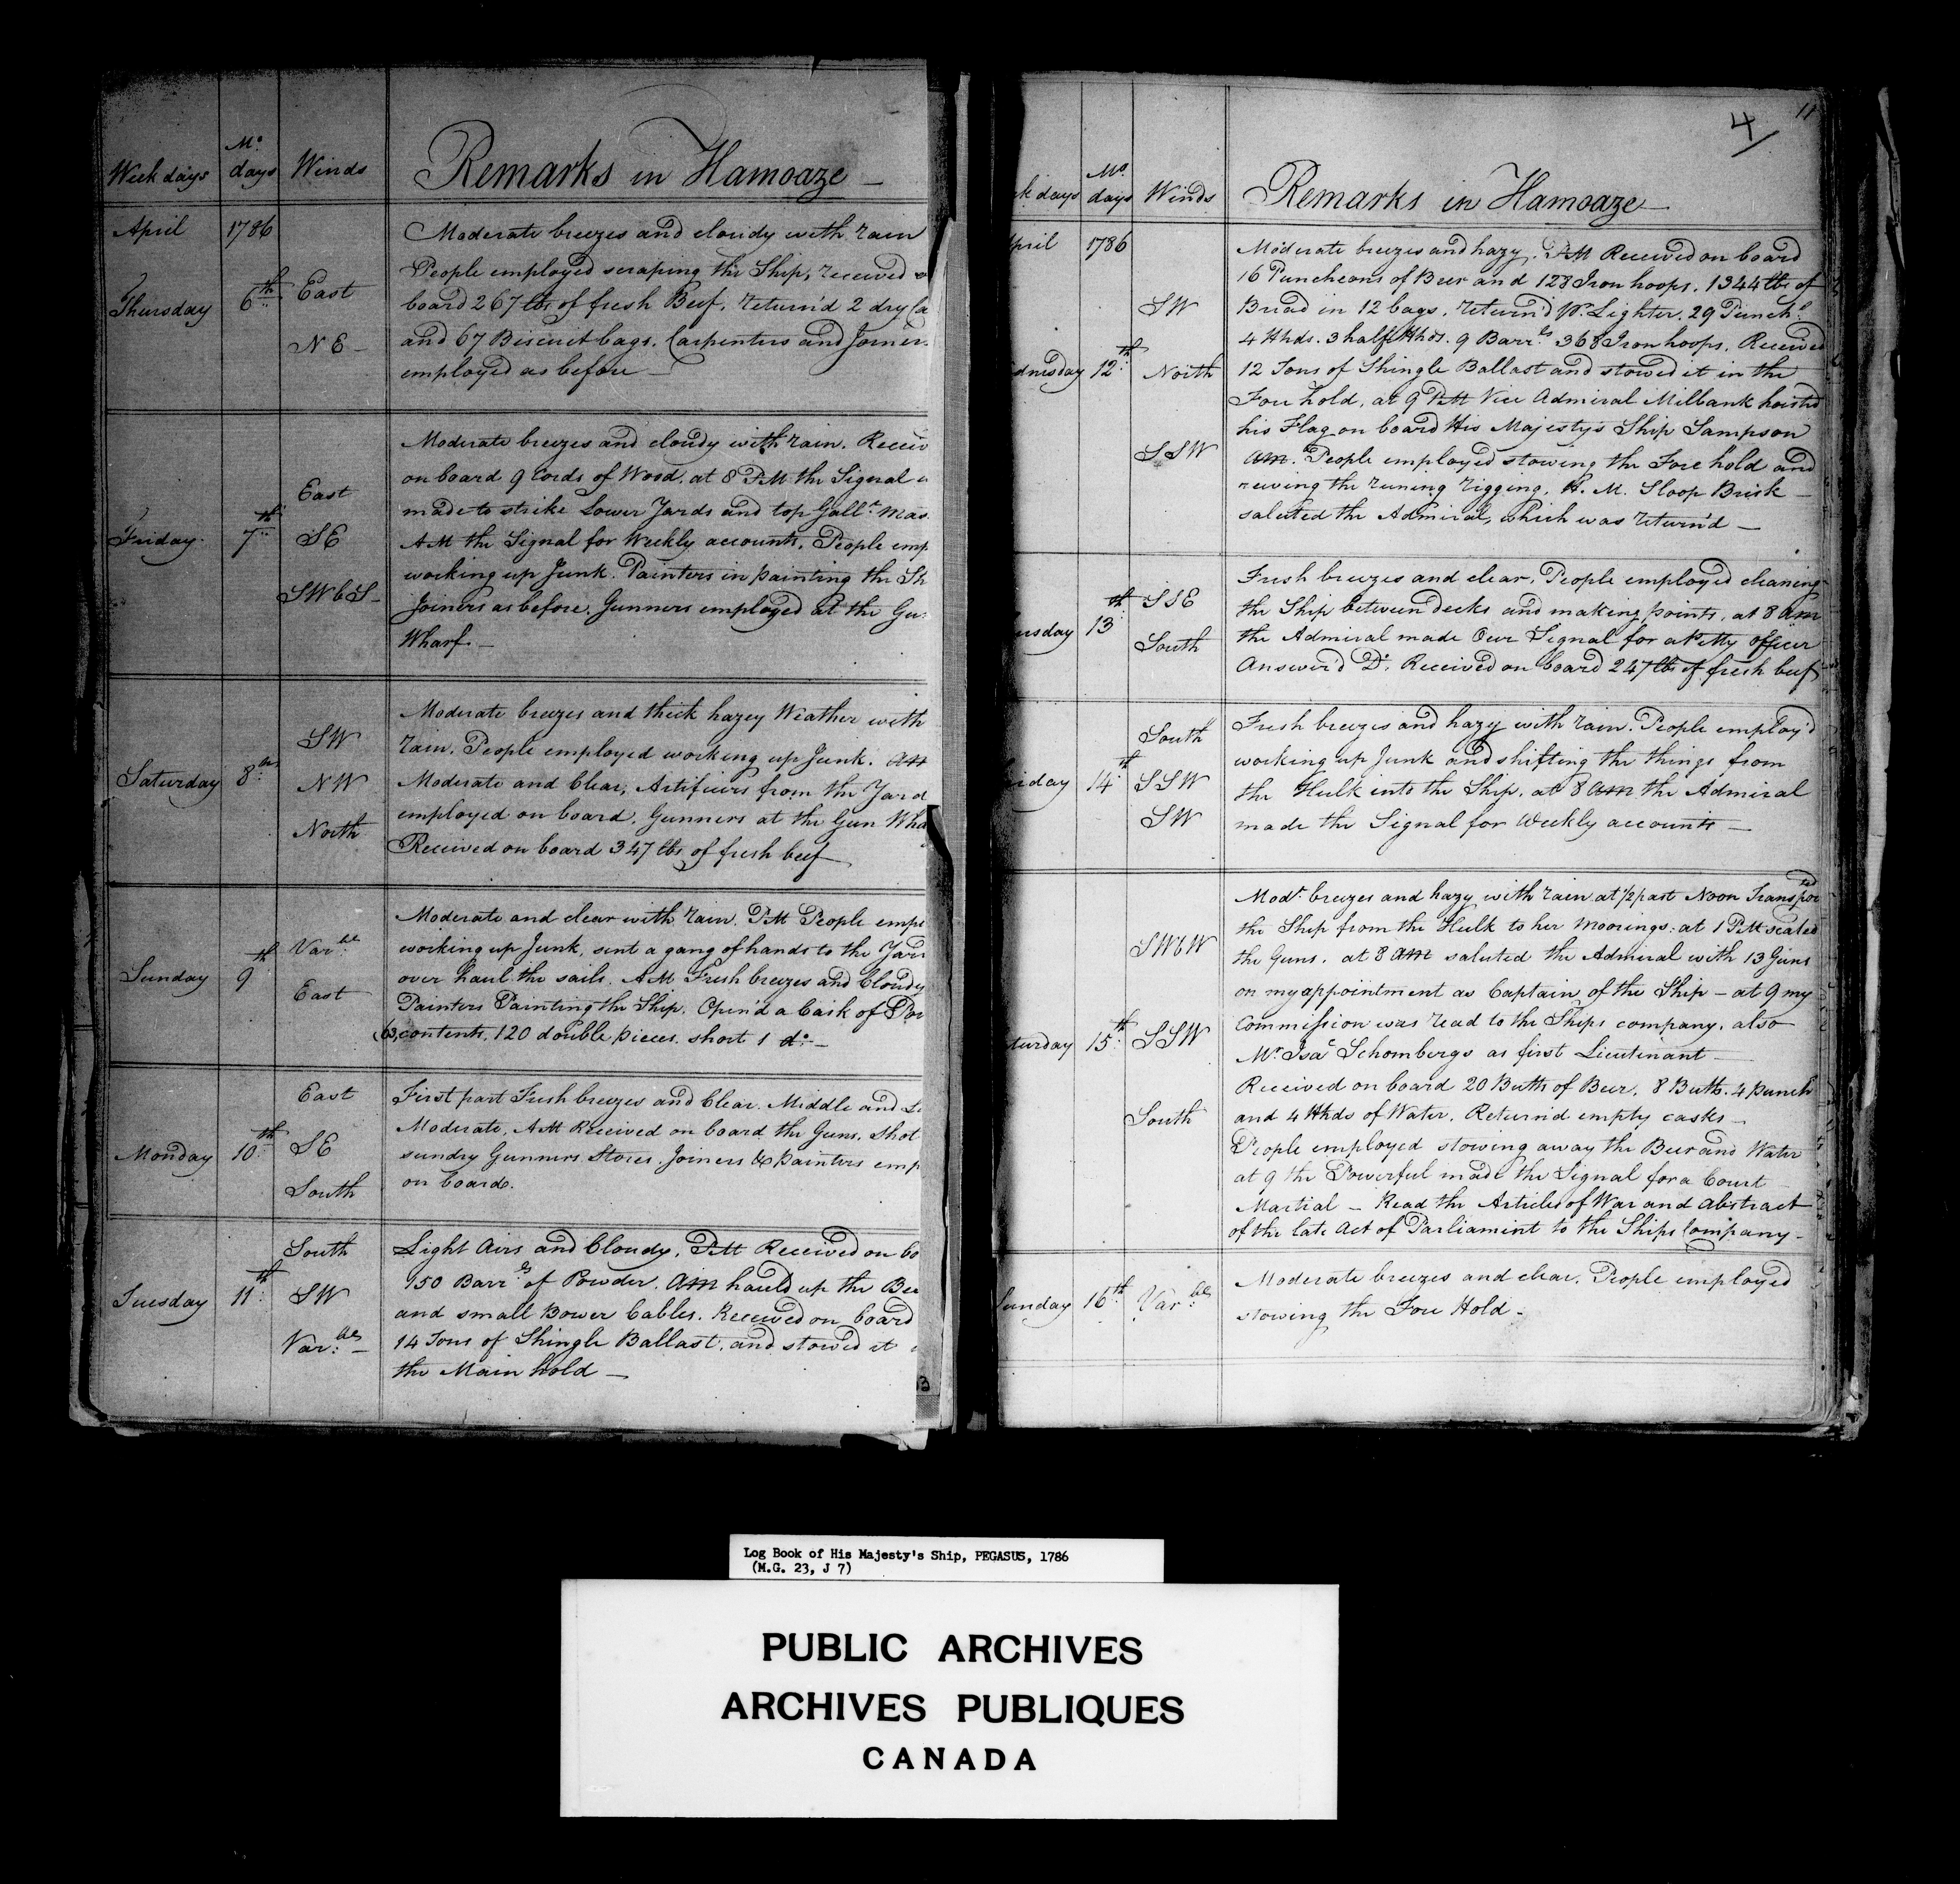 Week days Mo. days Winds Remarks in Hamoaze —
April 1786
Moderate breezes and cloudy with rain
People employed scraping the Ship, received
Thursday 6th East
board 267 lbs of fresh Beef. return'd 2 dry Ca
NE —
and 67 Biscuit bags. Carpenters and Joiners
employed as before —
Moderate breezes and cloudy with rain. Receiv
on board 9 Cords of Wood. at 8 PM the Signal
East
made to strike Lower Yards and top Gallt. Mas
Friday 7th SE
AM the Signal for Weekly accounts. People emp
working up Junk. Painters in painting the Sh
SWbS —
Joiners as before. Gunners employed at the Gu
Wharf. —
Moderate breezes and thick hazey Weather with
SW
rain. People employed working up Junk. AM
Saturday 8th NW
Moderate and Clear, Artificers from the Yard
employed on board. Gunners at the Gun Wha
North
Received on board 347 lbs of fresh beef —
Moderate and clear with rain. PM People empl
Varble
working up Junk, sent a gang of hands to the Yard
Sunday 9th
over haul the sails. AM Fresh breezes and Cloudy
East
Painters Painting the Ship. Open'd a Cask of Por
contents, 120 double pieces. short 1 do. —
East
First part Fresh breezes and Clear. Middle and
Monday 10th SE
Moderate. AM Received on board the Guns, Shot
sundry Gunners Stores. Joiners & painters emp
South
on board.
South
Light Airs and Cloudy. PM Received on bo
150 Barrls of Powder. AM hauld up the Be
Tuesday 11th SW
and small Bower Cables. Received on board
Varble —
14 Tons of Shingle Ballast, and stowed it
the Main hold —
3
11
4
k days Mo. days Winds Remarks in Hamoaze —
pril 1786
Moderate breezes and hazy. PM Received on board
16 Puncheons of Beer and 128 Iron hoops. 1344 lbs of
SW
Bread in 12 bags. return'd Pr. Lighter. 29 Punchs.
4 Hhds. 3 half Hhds. 9 Barrls 368 Iron hoops. Received
dnesday 12th North
12 Tons of Shingle Ballast and stowed it in the
Fore hold, at 9 PM Vice Admiral Milbank hoisted
his Flag on board His Majestys Ship Sampson
SSW
AM. People employed stowing the Fore hold and
reeving the runing rigging. H. M. Sloop Brisk —
saluted the Admiral, which was return'd —
Fresh breezes and clear. People employed cleaning
SSE
the Ship between decks and making points, at 8 AM
ursday 13th
the Admiral made Our Signal for a Petty Officer
South
Answer'd Do. Received on board 247 lbs of fresh beef
South
Fresh breezes and hazy with rain. People employ'd
working up Junk and shifting the things from
iday 14th SSW
the Hulk into the Ship. at 8 AM the Admiral
SW
made the Signal for Weekly accounts —
Modt. breezes and hazy with rain at 1/2 past Noon Transported
the Ship from the Hulk to her Moorings: at 1 PM scaled
SWbW
the Guns. at 8 AM saluted the Admiral with 13 Guns
on my appointment as Captain of the Ship — at 9 my
turday 15th SSW
Commission was read to the Ships company. also
Mr. Isac Schombergs as first Lieutenant —
Received on board 20 Butts of Beer, 8 Butts. 4 punch
South
and 4 Hhds of Water. Return'd empty casks —
People employed stowing away the Beer and Water
at 9 the Powerful made the Signal for a Court
Martial — Read the Articles of War and Abstract
of the late Act of Parliament to the Ships Company —
Sunday 16th Varble
Moderate breezes and clear. People employed
stowing the Fore Hold —
Log Book of His Majesty's Ship, PEGASUS, 1786
(M.G. 23, J 7)
PUBLIC ARCHIVES
ARCHIVES PUBLIQUES
CANADA